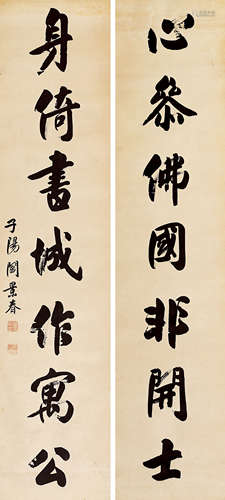 心參佛國非開士
身倚書城作寓公
子陽國景春